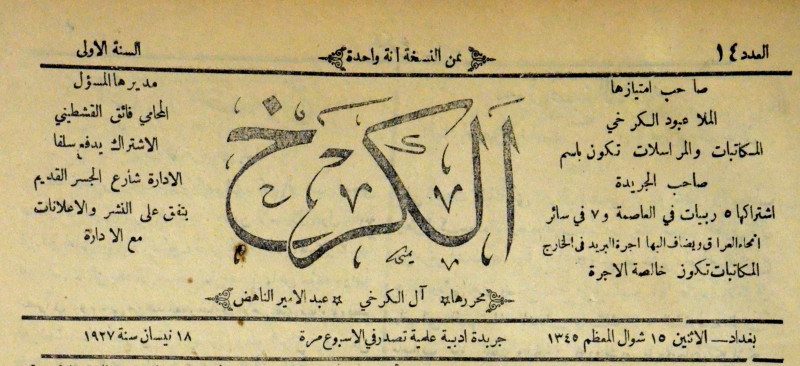 العدد ١٤
ثمن النسخة آنة واحدة
السنة الاولى
صاحب امتيازها
الملا عبود الكرخي
المكاتبات والمراسلات تكون باسم
صاحب الجريدة
اشتراكها ٥ ربيات في العاصمة و ٧ في سائر
انحاء العراق ويضاف اليها اجرة البريد في الخارج
المكاتبات تكون خالصة الاجرة
الكرخ
مديرها المسؤل
المحامي فائق القشطيني
الاشتراك يدفع سلفا
الادارة شارع الجسر القديم
يتفق على النشر والاعلانات
مع الادارة
محررها آل الكرخي * عبد الامير الناهض
بغداد ــ الاثنين ١٥ شوال المعظم ١٣٤٥
جريدة ادبية علمية تصدر في الاسبوع مرة
١٨ نيسان سنة ١٩٢٧